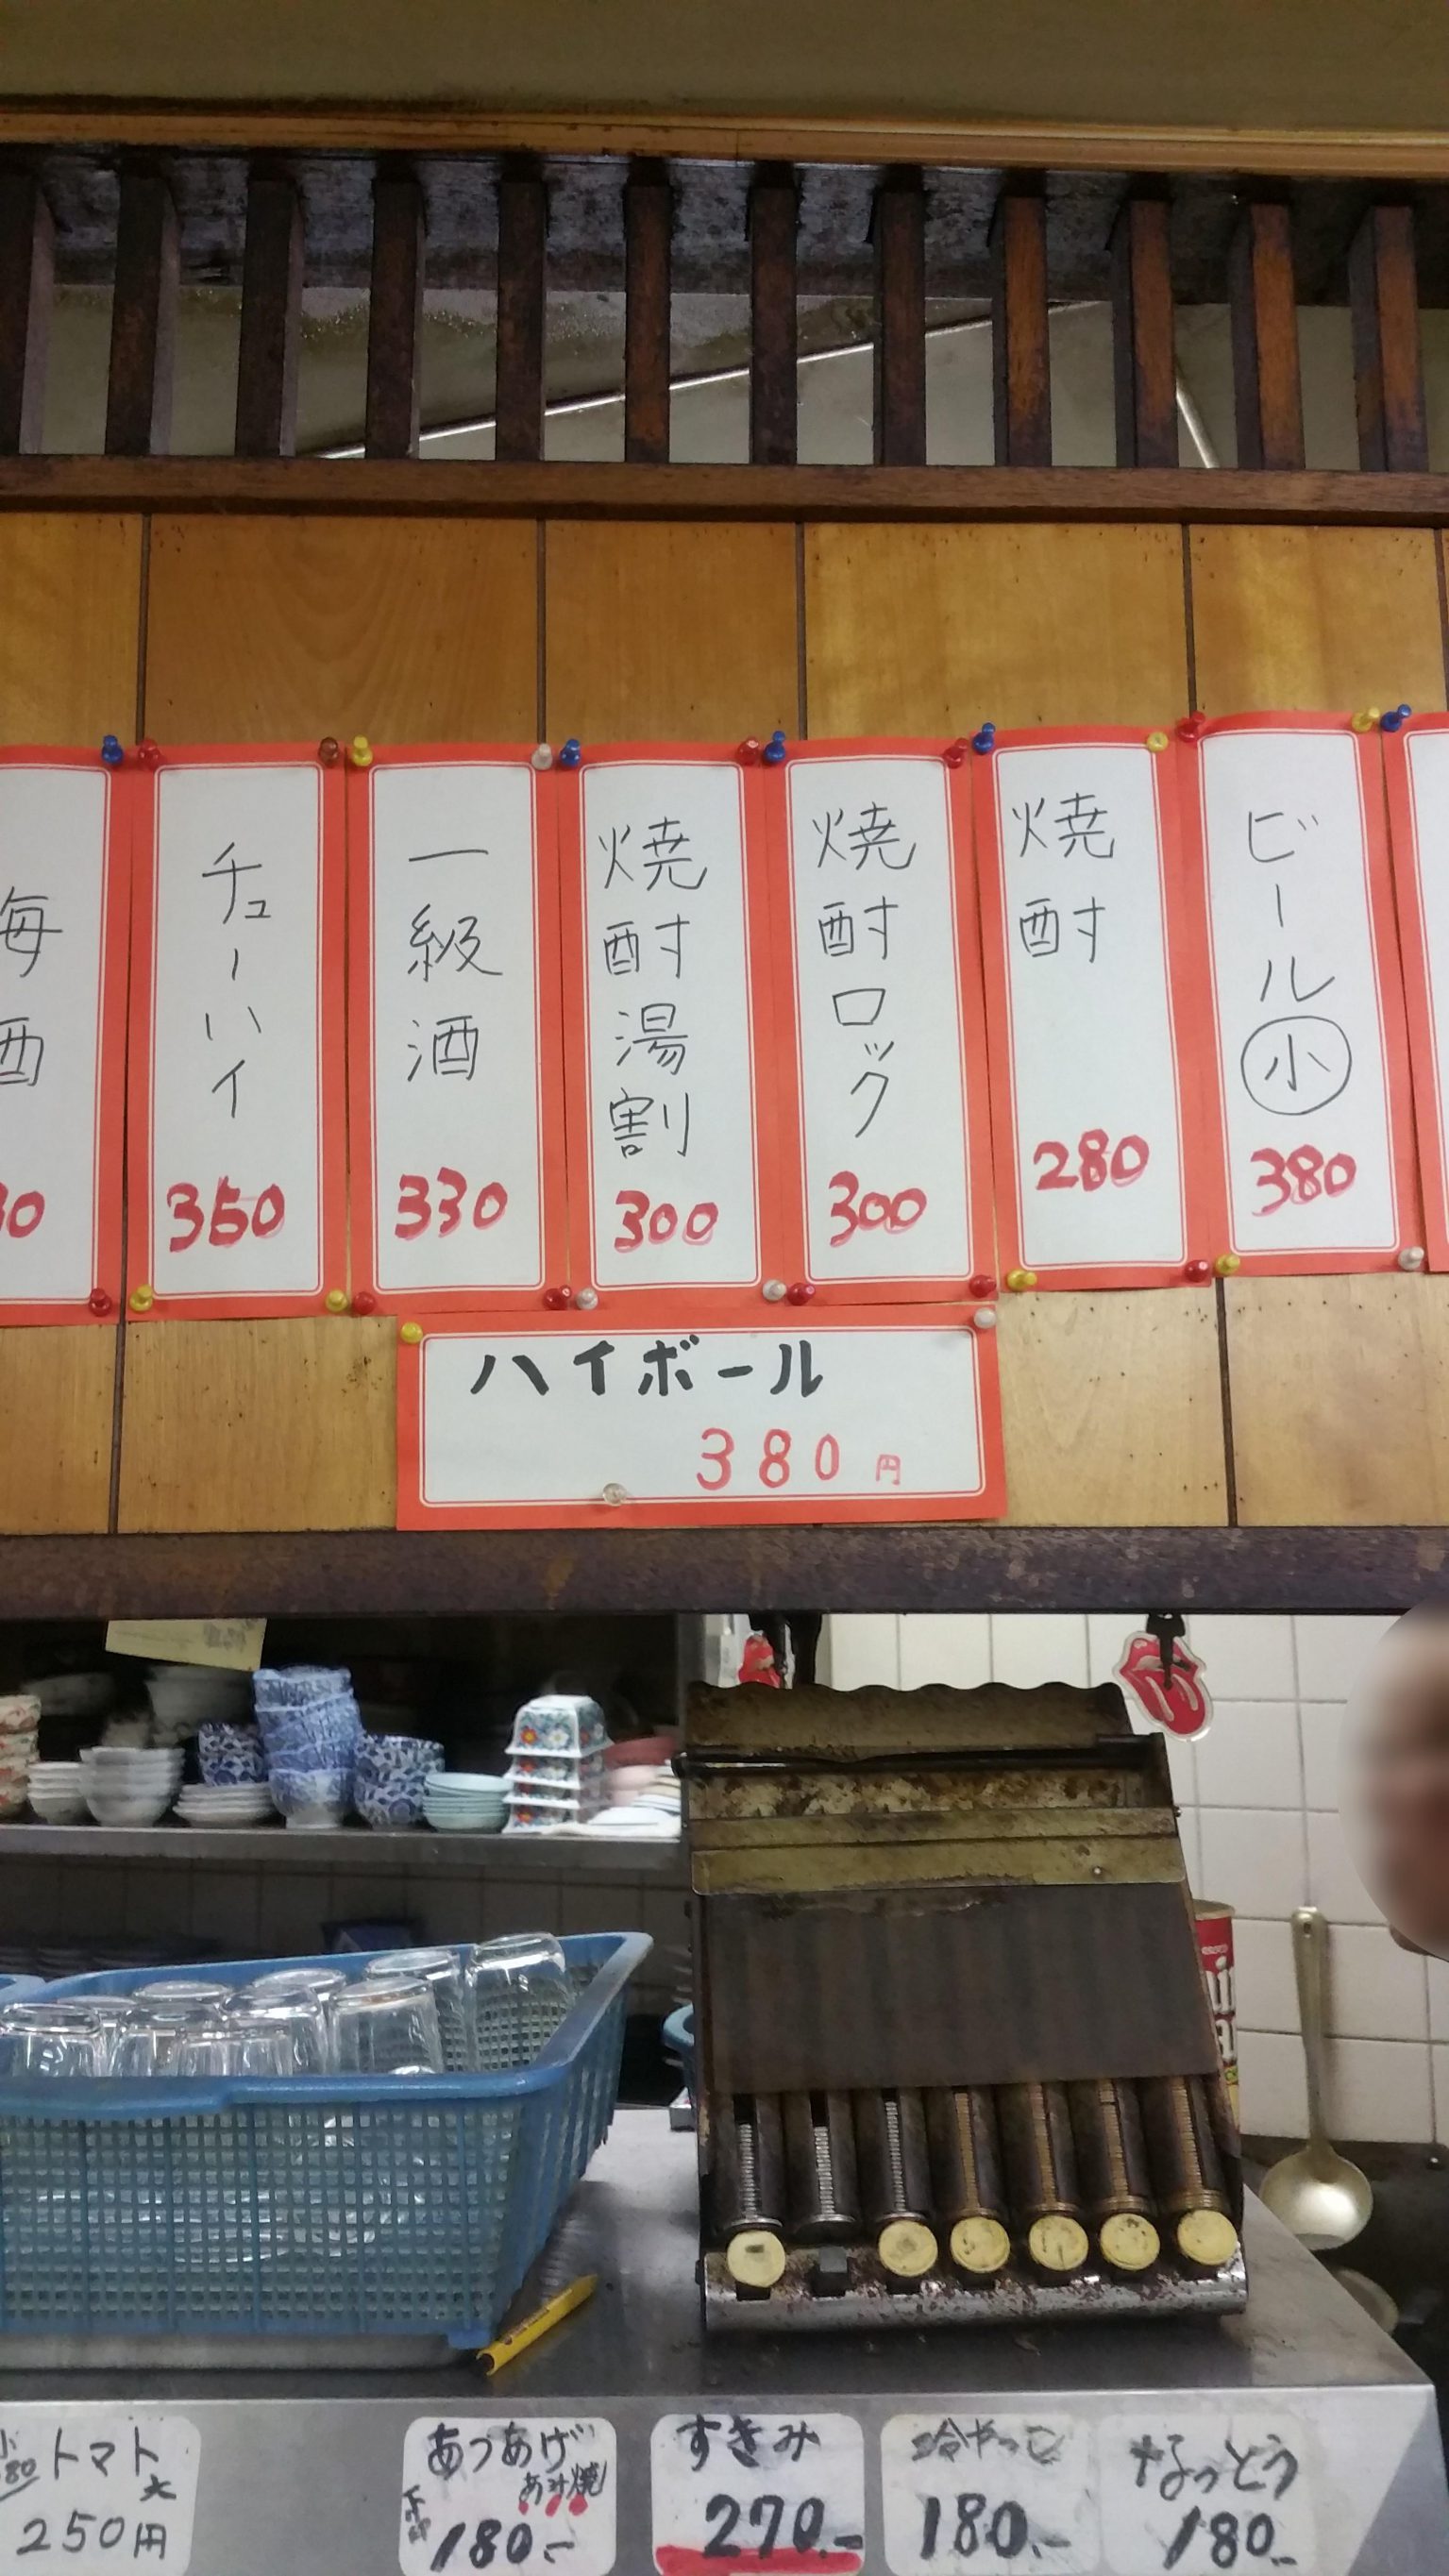 ビール小
380
焼酎
280
焼酎ロック
300
焼酎湯割
300
一級酒
330
チューハイ
350
酒
ハイボール
380円
トマト
大
250円
あつあげ
あみ焼
180.-
すきみ
270.-
冷やっこ
180.-
なっとう
180.-